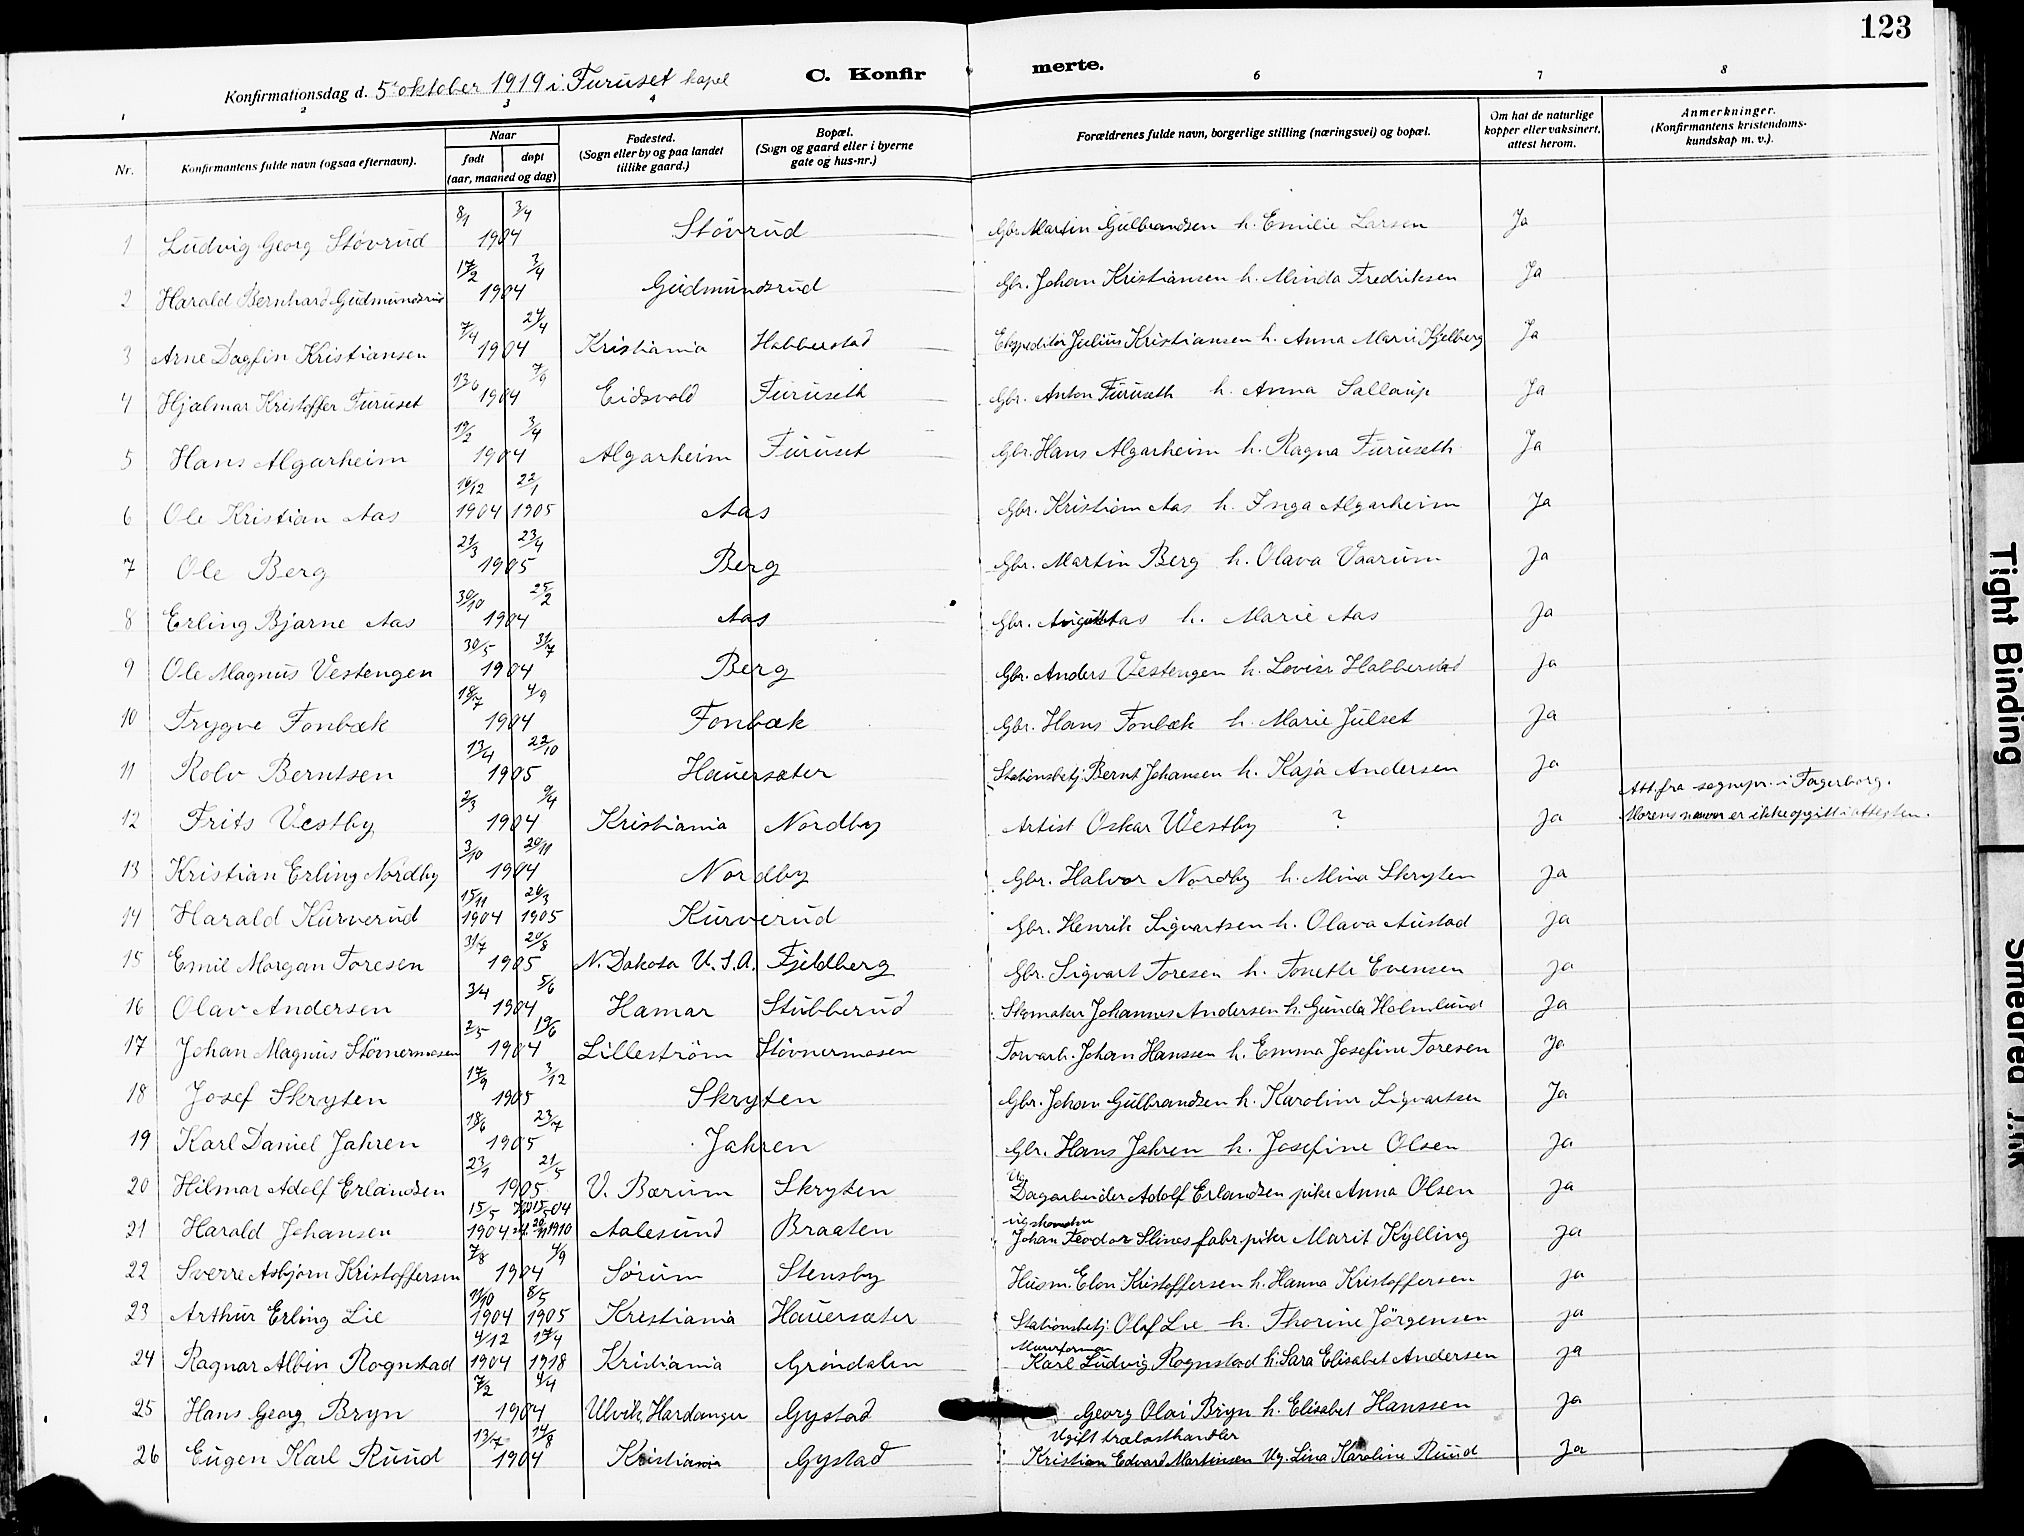 123
C. Konfirmerte.
Konfirmationsdag d. 5 oktober 1919 i Furuset kapel
1 2 3 4 6 7 8
Nr. Konfirmantens fulde navn (ogsaa efternavn). Naar født døpt (aar, maaned og dag) Fødested. (Sogn eller by og paa landet tillike gaard.) Bopæl. (Sogn og gaard eller i byerne gate og hus-nr.) Forældrenes fulde navn, borgerlige stilling (næringsvei) og bopæl. Om hat de naturlige kopper eller vaksinert, attest herom. Anmerkninger. (Konfirmantens kristendoms-kundskap m. v.).
1 Ludvig Georg Stövrud 8/1 3/4 1904 Stövrud Gbr. Martin Gulbrandsen h. Emilie Larsen Ja
2 Harald Bernhard Gudmundsrud 17/2 3/4 1904 Gudmundsrud Gbr. Johan Kristiansen h. Minda Fredriksen Ja
3 Arne Dagfin Kristiansen 7/4 24/4 1904 Kristiania Habberstad Ekspeditör Julius Kristiansen h. Anna Marie Kjelberg Ja
4 Hjalmar Kristoffer Furuset 13/6 7/9 1904 Eidsvold Furuseth Gbr. Anton Furuseth h. Anna Sallaup Ja
5 Hans Algarheim 19/2 3/4 1904 Algarheim Furuset Gbr. Hans Algarheim h. Ragna Furuseth Ja
6 Ole Kristian Aas 16/12 1904 22/1 1905 Aas Gbr. Kristian Aas h. Inga Algarheim Ja
7 Ole Berg 21/3 23/4 1905 Berg Gbr. Martin Berg h. Olava Vaarum Ja
8 Erling Bjarne Aas 30/10 25/2 1904 Aas Gbr. August Aas h. Marie Aas Ja
9 Ole Magnus Vestengen 30/5 31/7 1904 Berg Gbr. Anders Vestengen h. Lovise Habberstad Ja
10 Trygve Fonbæk 18/7 4/9 1904 Fonbæk Gbr. Hans Fonbæk h. Marie Julset Ja
11 Rolv Berntsen 13/4 22/10 1905 Hauersæter Stationsbetj. Bernt Johansen h. Kaja Andersen Ja
12 Frits Vestby 2/3 9/4 1904 Kristiania Nordby Artist Oskar Westby ? Ja Att. fra sognepr. i Fagerborg. Morens navn er ikke opgitt i attesten.
13 Kristian Erling Nordby 3/10 20/11 1904 Nordby Gbr. Halvor Nordby h. Mina Skryten Ja
14 Harald Kurverud 15/11 1904 26/3 1905 Kurverud Gbr. Henrik Sigvartsen h. Olava Austad Ja
15 Emil Morgan Toresen 31/7 20/8 1905 N. Dakota U.S.A. Fjeldberg Gbr. Sigvart Toresen h. Tonette Evensen Ja
16 Olav Andersen 3/4 5/6 1904 Hamar Stubberud Skomaker Johannes Andersen h. Gunda Holmlund Ja
17 Johan Magnus Stövnermosen 2/5 19/6 1904 Lilleström Stövnermosen Torvarb. Johan Hanssen h. Emma Josefine Toresen Ja
18 Josef Skryten 17/9 3/12 1905 Skryten Gbr. Johan Gulbrandsen h. Karoline Sigvartsen Ja
19 Karl Daniel Jahren 18/6 23/7 1905 Jahren Gbr. Hans Jahren h. Josefine Olsen Ja
20 Hilmar Adolf Erlandsen 23/1 21/5 1905 V. Bærum Skryten Ug. Dagarbeider Adolf Erlandsen pike Anna Olsen Ja
21 Harald Johansen 15/5 1904 1910 Aalesund Braaten Johan Teodor Slines fabr.pike Marit Kylling Ja
22 Sverre Asbjörn Kristoffersen 7/8 4/9 1904 Sörum Stensby Husm. Elon Kristoffersen h. Hanna Kristoffersen Ja
23 Arthur Erling Lie 21/10 1904 8/5 1905 Kristiania Hauersæter Stationsbetj. Olaf Lie h. Thorine Jörgensen Ja
24 Ragnar Albin Rognstad 4/12 1904 17/4 1918 Kristiania Gröndalen Murerforman Karl Ludvig Rognstad h. Sara Elisabet Andersen Ja
25 Hans Georg Bryn 7/2 4/4 1904 Ulvik, Hardanger Gystad Georg Olai Bryn h. Elisabet Hanssen Ja
26 Eugen Karl Ruud 13/7 14/8 1904 Kristiania Gystad Ugift trælasthandler Kristian Edvard Martinsen Ug. Lina Karoline Ruud Ja
Tight Binding
Smeared